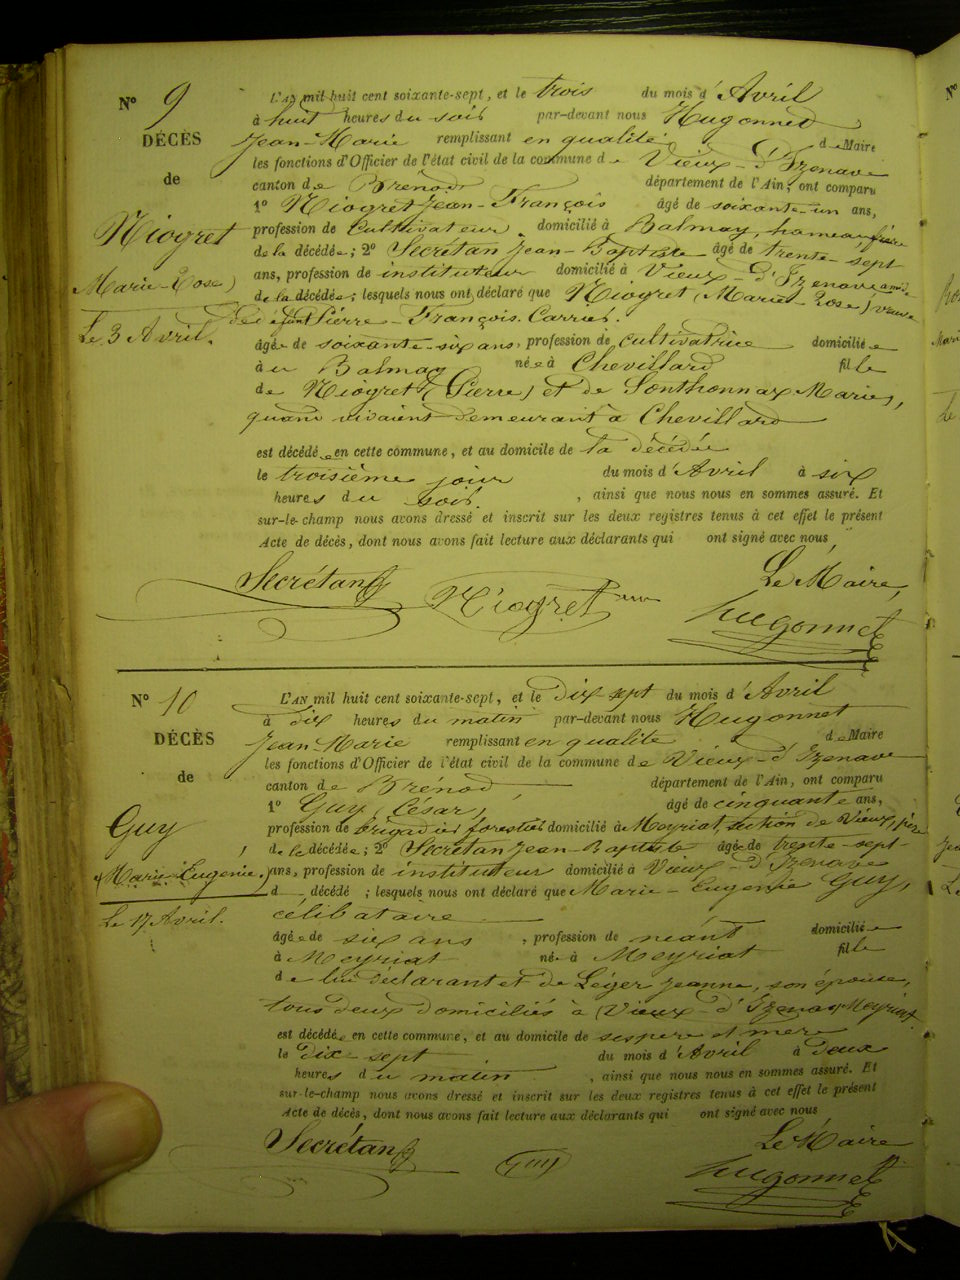 N° 9
DÉCÈS
de
Niogret
Marie-Rose)
Le 3 Avril.
L'AN mil huit cent soixante-sept, et le trois du mois d'Avril
à huit heures du soir par-devant nous Hugonnet
Jean-Marie remplissant en qualité de Maire
les fonctions d'Officier de l'état civil de la commune de Vieux-d'Izenave
canton de Brénod département de l'Ain, ont comparu
1° Niogret Jean-François âgé de soixante-un ans,
profession de Cultivateur domicilié à Balmay, hameau, frère
de la décédée; 2° Secrétan Jean-Baptiste âgé de trente-sept
ans, profession de instituteur domicilié à Vieux-d'Izenave ami
de la décédée; lesquels nous ont déclaré que Niogret (Marie-Rose) veuve
de défunt Pierre-François Carrier.
âgée de soixante-six ans, profession de cultivatrice domiciliée
au Balmay née à Chevillard fille
de Niogret (Pierre) et de Sonthonnax Marie,
quand vivaient demeurant à Chevillard
est décédée en cette commune, et au domicile de la décédée
le troisième jour du mois d'Avril à six
heures du soir. , ainsi que nous nous en sommes assuré. Et
sur-le-champ nous avons dressé et inscrit sur les deux registres tenus à cet effet le présent
Acte de décès, dont nous avons fait lecture aux déclarants qui ont signé avec nous
Le Maire,
Secrétan Niogret Hugonnet
N° 10
DÉCÈS
de
Guy
Marie-Eugénie.
Le 17 Avril.
L'AN mil huit cent soixante-sept, et le dix sept du mois d'Avril
à dix heures du matin par-devant nous Hugonnet
Jean-Marie remplissant en qualité de Maire
les fonctions d'Officier de l'état civil de la commune de Vieux-d'Izenave
canton de Brénod département de l'Ain, ont comparu
1° Guy (César) âgé de cinquante ans,
profession de brigadier forestier domicilié à Meyriat, section de Vieux, père
de la décédée; 2° Secrétan Jean-Baptiste âgé de trente-sept
ans, profession de instituteur domicilié à Vieux-d'Izenave
d décédé ; lesquels nous ont déclaré que Marie-Eugénie Guy,
célibataire
âgée de six ans , profession de néant domiciliée
à Meyriat née à Meyriat fille
de lui déclarant et de Léger Jeanne, son épouse,
tous deux domiciliés à Vieux-d'Izenave Meyriat
est décédée en cette commune, et au domicile de ses père et mère
le dix-sept du mois d'Avril à deux
heures du matin , ainsi que nous nous en sommes assuré. Et
sur-le-champ nous avons dressé et inscrit sur les deux registres tenus à cet effet le présent
Acte de décès, dont nous avons fait lecture aux déclarants qui ont signé avec nous
Le Maire
Secrétan Guy Hugonnet